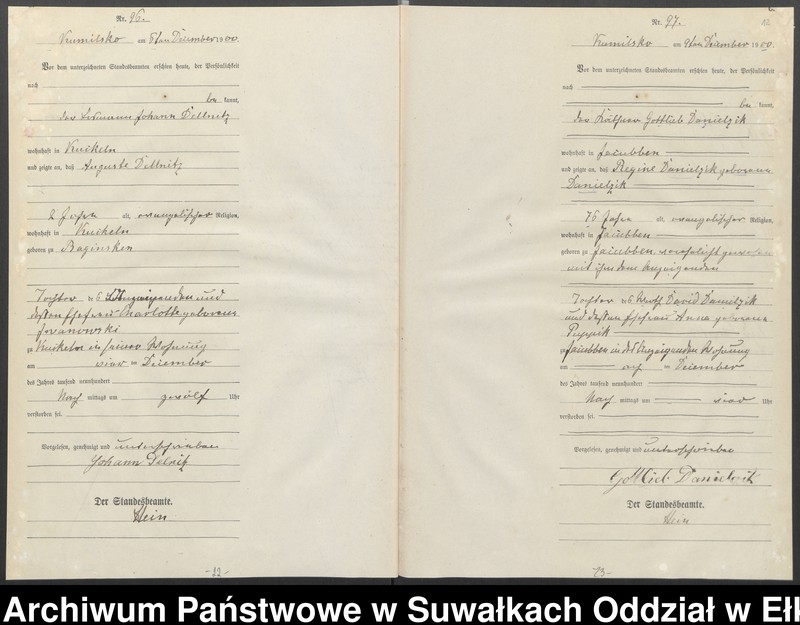 Nr. 96.
Kumilsko am 8ten Dezember 1900.
Vor dem unterzeichneten Standesbeamten erschien heute, der Persönlichkeit
nach
be kannt,
der Johann Dellnitz
wohnhaft in
und zeigte an, daß Auguste Dellnitz
2 Jahre alt, evangelischer Religion,
wohnhaft in
geboren zu Baginsken
Tochter des Anzeigenden und
dessen Ehefrau Charlotte geborene
Iwanowski
zu in seiner Wohnung
am vier ten Dezember
des Jahres tausend neunhundert
Nach mittags um zwölf Uhr
verstorben sei.
Vorgelesen, genehmigt und unterschrieben
Johann
Der Standesbeamte.
Hein
-22-
Nr. 97.
Kumilsko am 9ten Dezember 1900.
Vor dem unterzeichneten Standesbeamten erschien heute, der Persönlichkeit
nach
be kannt,
der Käthner Gottlieb Danielzik
wohnhaft in Jakubben
und zeigte an, daß Regine Danielzik geborene
Danielzik
76 Jahre alt, evangelischer Religion,
wohnhaft in Jakubben
geboren zu Jakubben, verehelicht gewesen
mit ihm dem Anzeigenden
Tochter des David Danielzik
und dessen Ehefrau Anna geborene
Puppik
zu Jakubben in des Anzeigenden Wohnung
am ach ten Dezember
des Jahres tausend neunhundert
Nach mittags um vier Uhr
verstorben sei.
Vorgelesen, genehmigt und unterschrieben
Gottlieb
Der Standesbeamte.
Hein
-23-
Archiwum Państwowe w Suwałkach Oddział w Ełk